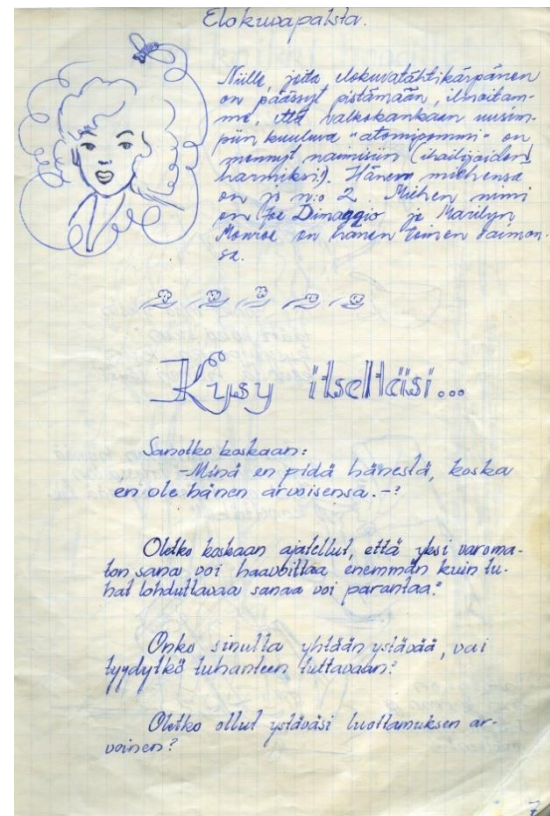 Elokuvapalsta.
Niille, joita elokuvatähtikärpänen
on päässyt pistämään, ilmoitam-
me, että valkokankaan uusim-
piin kuuluva "atomipommi" on
mennyt naimisiin (ihailijoidensa
harmiksi). Hänen miehensä
on jo n:o 2. Miehen nimi
on Joe Dimaggio ja Marilyn
Monroe on hänen toinen vaimon-
sa.
Kysy itseltäsi...
Sanotko koskaan:
-Minä en pidä hänestä, koska
en ole hänen arvoisensa.-?
Oletko koskaan ajatellut, että yksi varoma-
ton sana voi haavoittaa enemmän kuin tu-
hat lohduttavaa sanaa voi parantaa?
Onko sinulla yhtään ystävää, vai
tyydytkö tuhanteen tuttavaan?
Oletko ollut ystäväsi luottamuksen ar-
voinen?
7